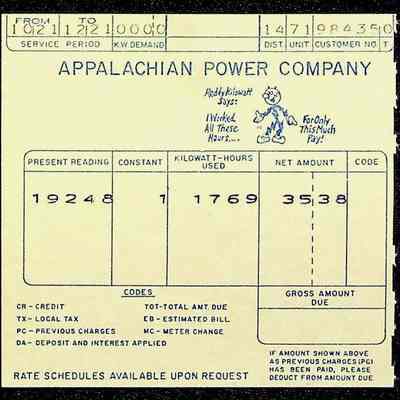 FROM TO
1021 1221 0000 1471984350
SERVICE PERIOD K.W. DEMAND DIST. UNIT CUSTOMER NO. T
APPALACHIAN POWER COMPANY
Reddy Kilowatt
Says:
I Worked
All These
Hours....
For Only
This Much
Pay!
PRESENT READING CONSTANT KILOWATT-HOURS USED NET AMOUNT CODE
19248 1 1769 3538
CODES
CR - CREDIT TOT-TOTAL AMT. DUE
TX - LOCAL TAX EB - ESTIMATED BILL
PC - PREVIOUS CHARGES MC - METER CHANGE
DA - DEPOSIT AND INTEREST APPLIED
GROSS AMOUNT
DUE
IF AMOUNT SHOWN ABOVE
AS PREVIOUS CHARGES (PC)
HAS BEEN PAID, PLEASE
DEDUCT FROM AMOUNT DUE.
RATE SCHEDULES AVAILABLE UPON REQUEST